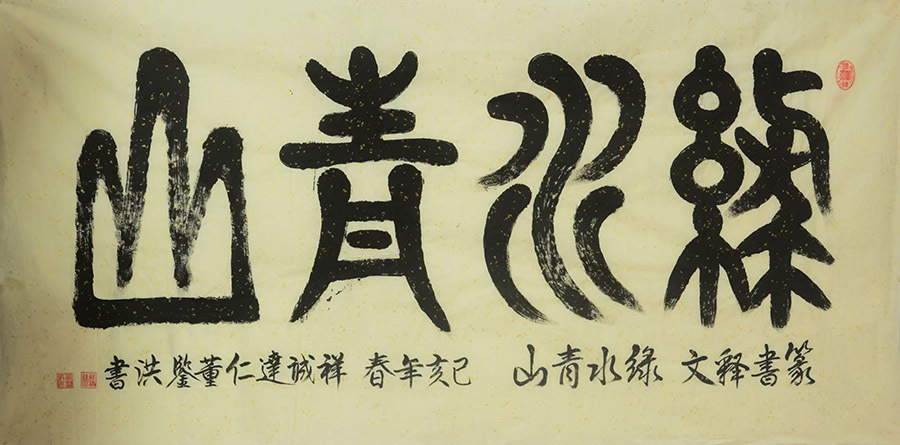 綠水青山
篆書釋文 綠水青山 己亥年春 祥誠達仁董鑒 洪書